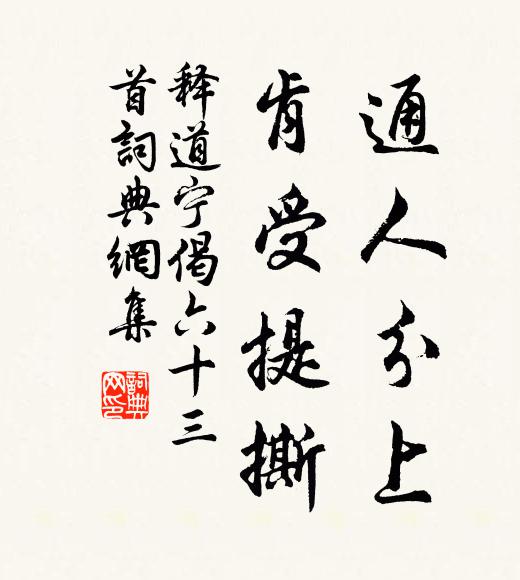 通人分上
肯受提撕
释道宁偈六十三
首詞典網集
詞典网印